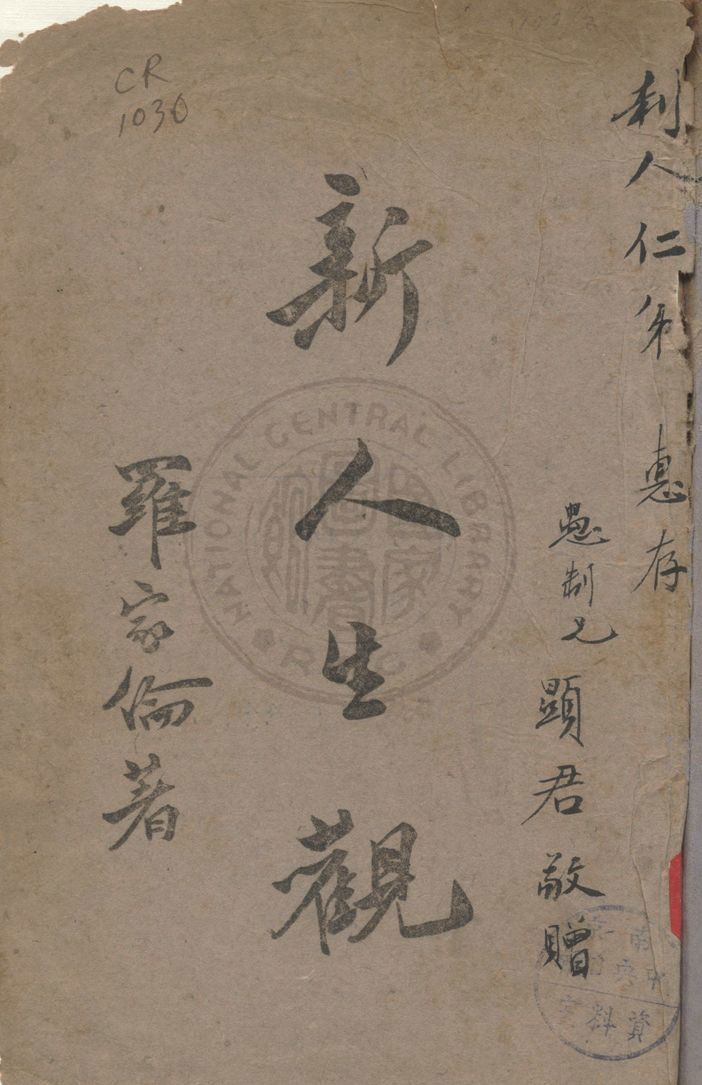 CR
1030
利人仁弟 惠存
愚制兄 顯君敬贈
新人生觀
羅家倫著
NATIONAL CENTRAL LIBRARY
國家圖書館
資料室